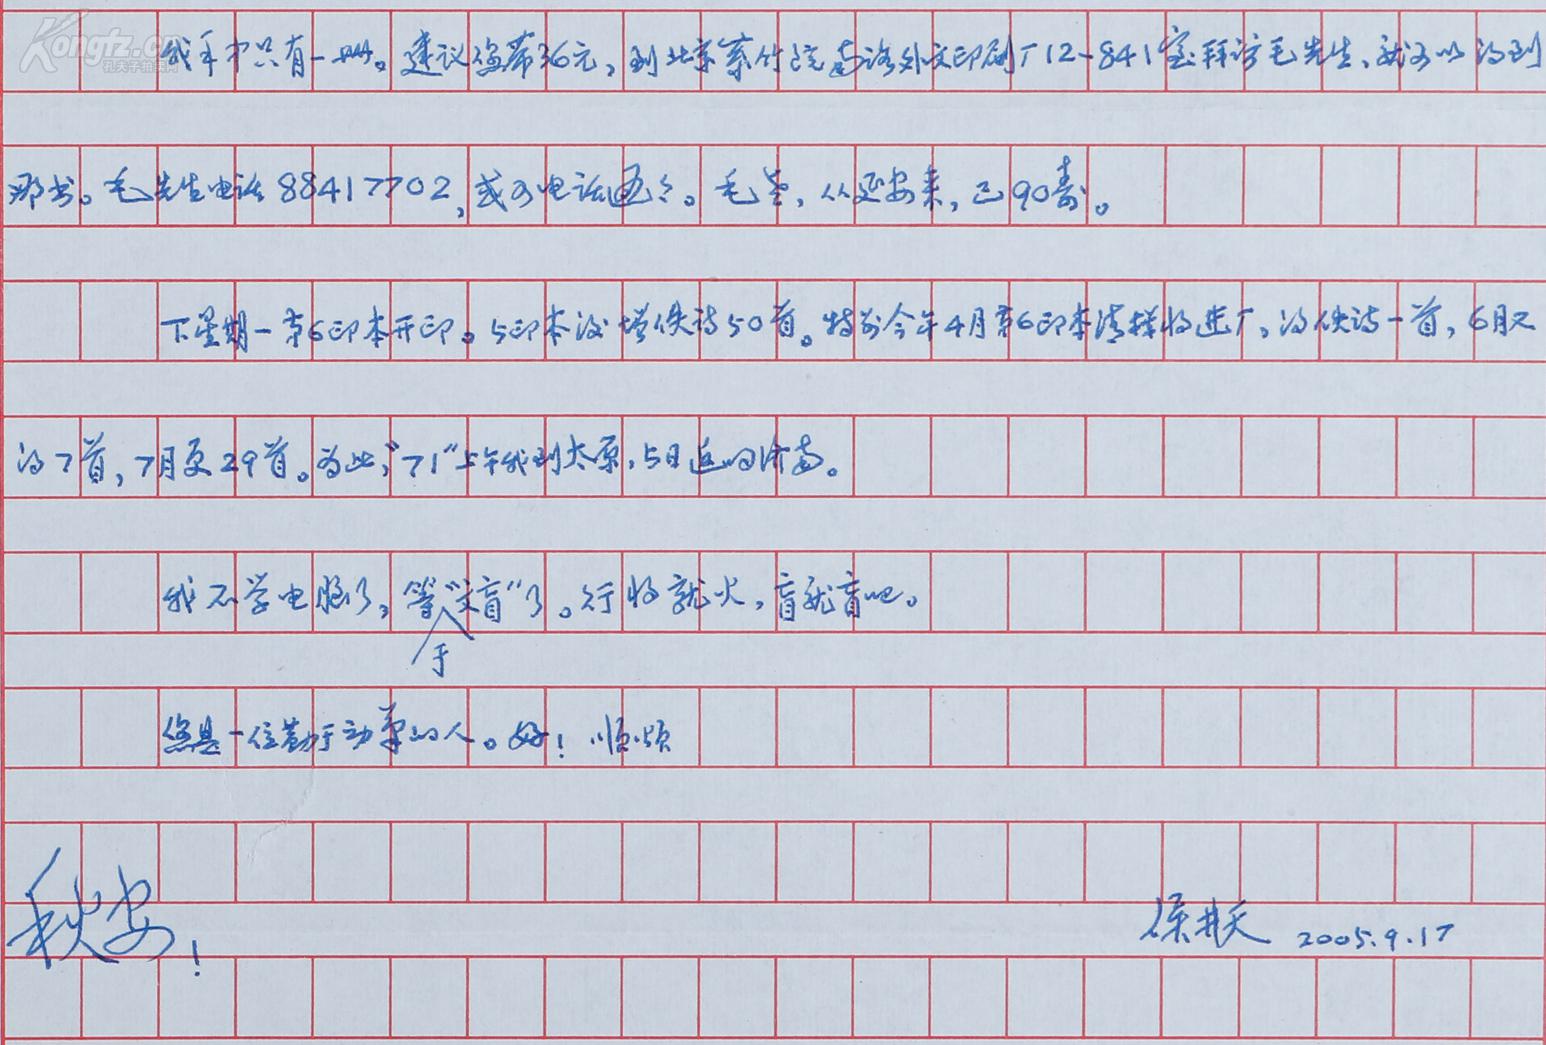 Kongfz.cn
孔夫子拍卖网
我手中只有一册。建议您带36元，到北京紫竹院南路外文印刷厂12-841室拜访毛先生，就可以得到
那书。毛先生电话88417702，或可电话。毛老，从延安来，已90寿。
下星期一第6印本开印。5印本后增佚诗50首。特别今年4月第6印本清样将进厂，得佚诗一首，6月又
得7首，7月更29首。为此，“71”上午我到太原，5日返回济南。
我不学电脑了，等于“文盲”了。行将就火，盲就盲吧。
您是一位勤于动笔的人。好！顺颂
秋安！
徐井天 2005.9.17